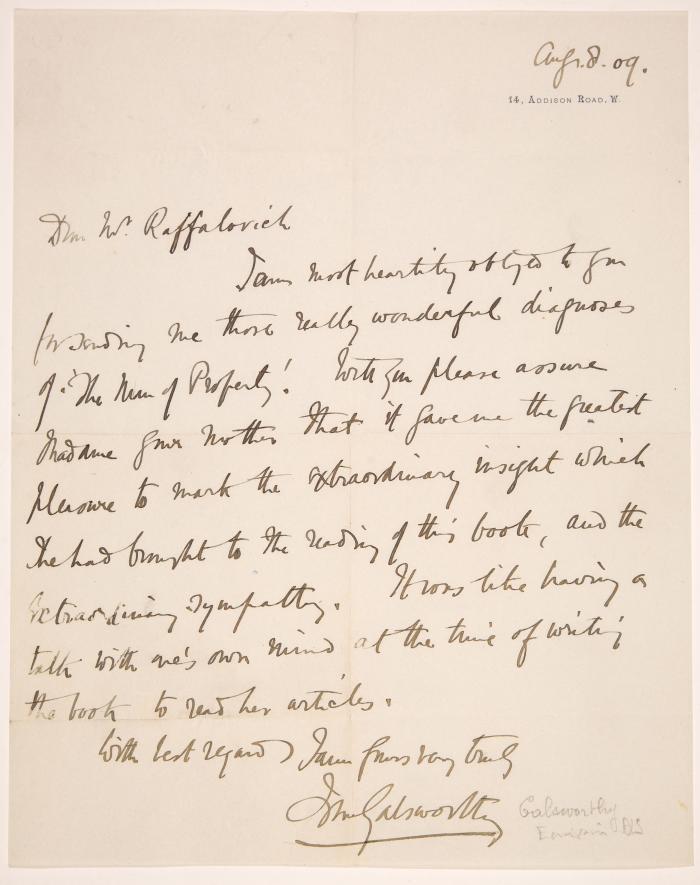 Aug. 8. 09.
14, Addison Road, W.
Dear Mr. Raffalovich
I am most heartily obliged to you
for sending me those really wonderful diagnoses
of 'The Man of Property'. Will you please assure
Madame your Mother that it gave me the greatest
pleasure to mark the extraordinary insight which
she had brought to the reading of this book, and the
extraordinary sympathy. It was like having a
talk with one's own mind at the time of writing
the book to read her articles.
With best regards I am yours very truly
John Galsworthy
Galsworthy